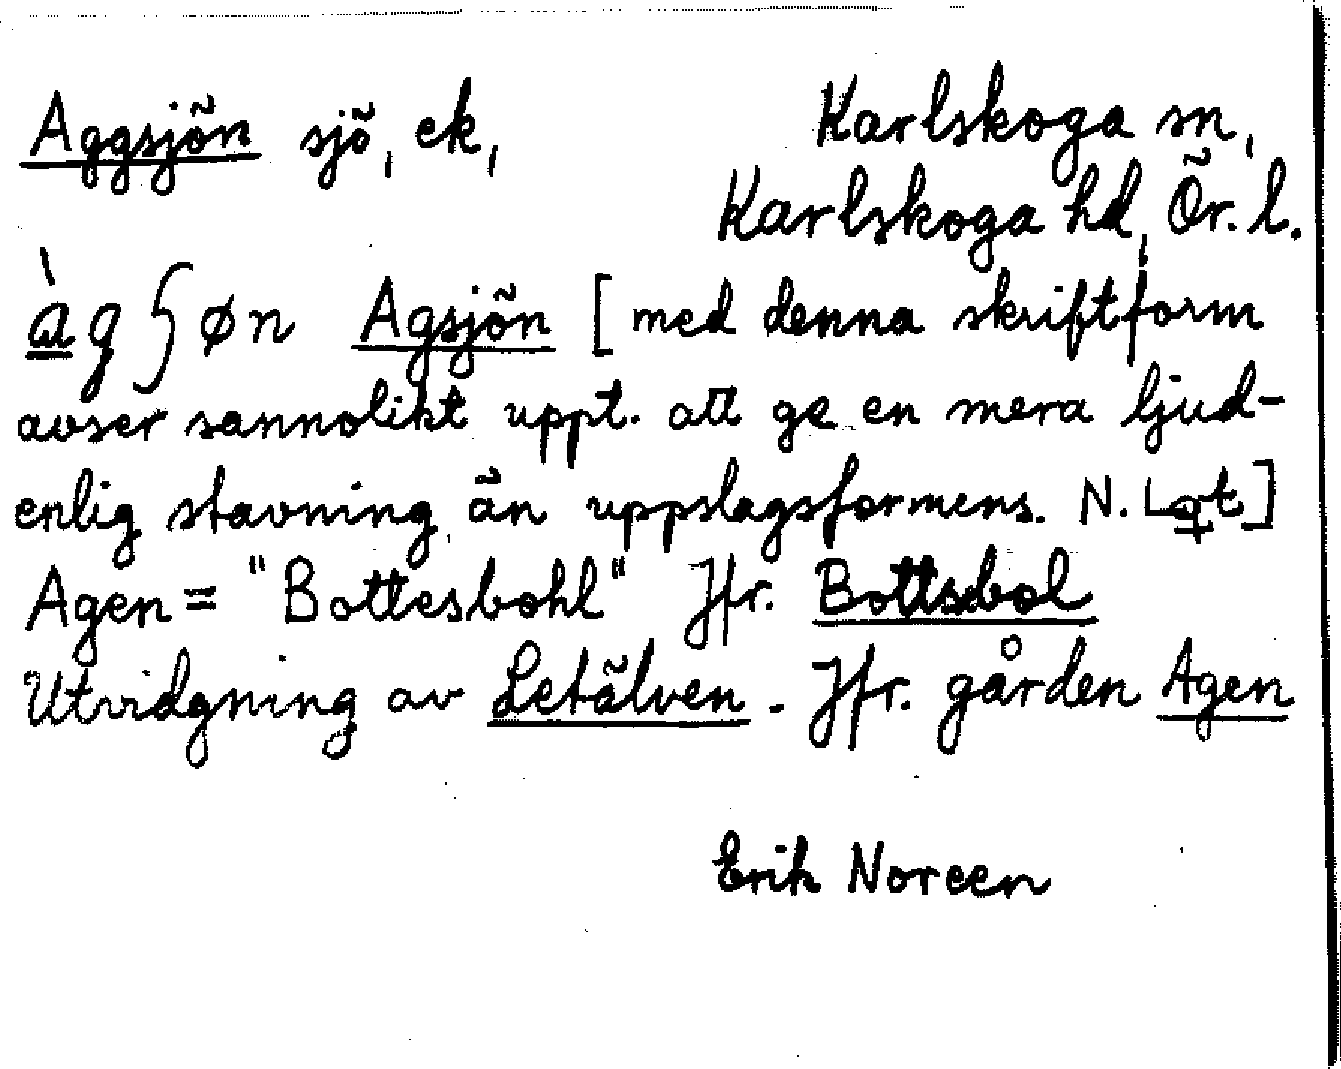 Aggsjön sjö, ek, Karlskoga sn,
Karlskoga hd, Ör. l.
àgʃøn Agsjön [med denna skriftform
avser sannolikt uppt. att ge en mera ljud-
enlig stavning än uppslagsformens. N. L:t]
Agen = "Bottesbohl" Jfr. Bottsbol
Utvidgning av Letälven. Jfr. gården Agen
Erik Noreen